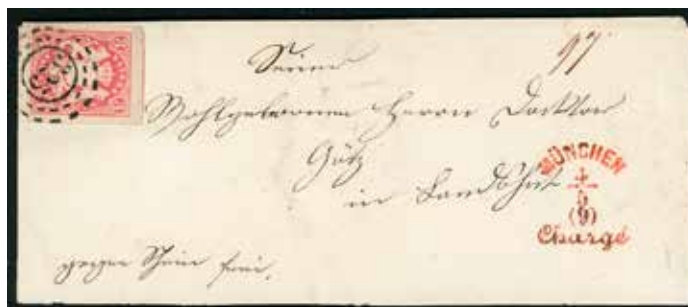 325
97
Seiner
Wohlgebornen Herrn Doktor
Götz
in Landshut
MÜNCHEN
4
5
(9)
Chargé
gegen Schein frei.